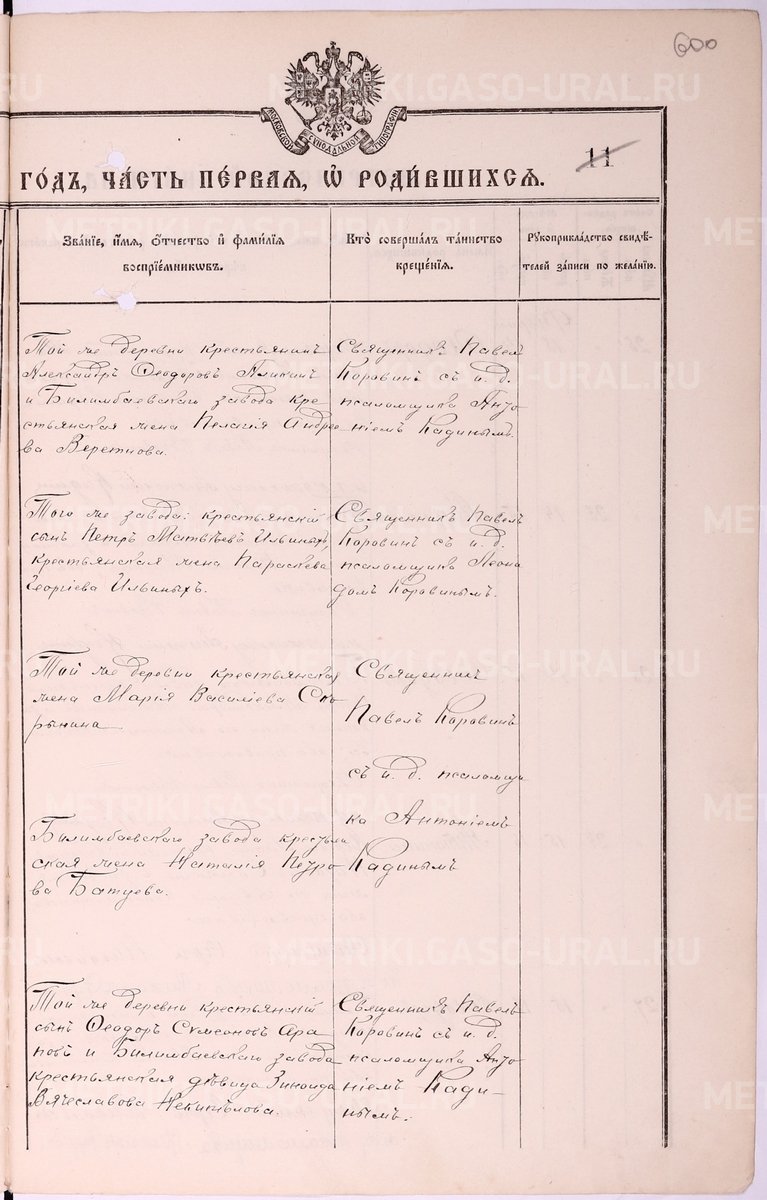 600
METRIKI.GASO-URAL.RU
МОСКОВСКОЙ СѴНОДАЛЬНОЙ ТИПОГРАФІИ
11
ГО́ДЪ, ЧА́СТЬ ПЕ́РВАЯ, Ѽ РОДИ́ВШИХСѦ.
Зва́нїе, и҆́мя, ѻ҆́тчество и҆ фами́лїя
воспрїе́мникѡвъ.
Кто̀ соверша́лъ та́инство
креще́нїя.
Рукоприкла́дство свидѣ́-
телей за́писи по жела́нїю.
Той же деревни крестьянинъ
Александръ Ѳеодоровъ Пикинъ
и Билимбаевскаго завода кре
стьянская жена Пелагія Андрее
ва Веретнова.
Священникъ Павелъ
Коровинъ съ и. д.
псаломщика Анто
ніемъ Кадинымъ.
Того же завода: крестьянскій
сынъ Петръ Матвѣевъ Ильиныхъ,
крестьянская жена Параскева
Георгіева Ильиныхъ.
Священникъ Павелъ
Коровинъ съ и. д.
псаломщика Леони
домъ Коровинымъ.
Той же деревни крестьянская
жена Марія Василіева Ско
рынина
Священник
Павелъ Коровинъ
съ и. д. псаломщи
ка Антоніемъ
Кадинымъ
Билимбаевскаго завода крестьян
ская жена Наталія Петро
ва Батуева.
Той же деревни крестьянскій
сынъ Ѳеодоръ Сѵмеоновъ Ара
повъ и Билимбаевскаго завода
крестьянская дѣвица Зинаида
Вячеславова
Священникъ Павелъ
Коровинъ съ и. д.
псаломщика Анто
ніемъ Кади-
нымъ.